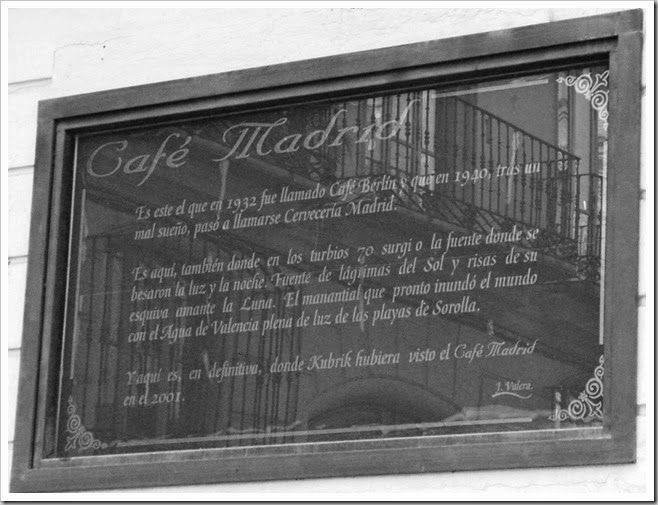 Café Madrid
Es este el que en 1932 fue llamado Café Berlín y que en 1940, tras un
mal sueño, pasó a llamarse Cervecería Madrid.
Es aquí, también donde en los turbios 70 surgió la fuente donde se
besaron la luz y la noche. Fuente de lágrimas del Sol y risas de su
esquiva amante la Luna. El manantial que pronto inundó el mundo
con el Agua de Valencia plena de luz de las playas de Sorolla.
Y aquí es, en definitiva, donde Kubrik hubiera visto el Café Madrid
en el 2001.
J. Valera.